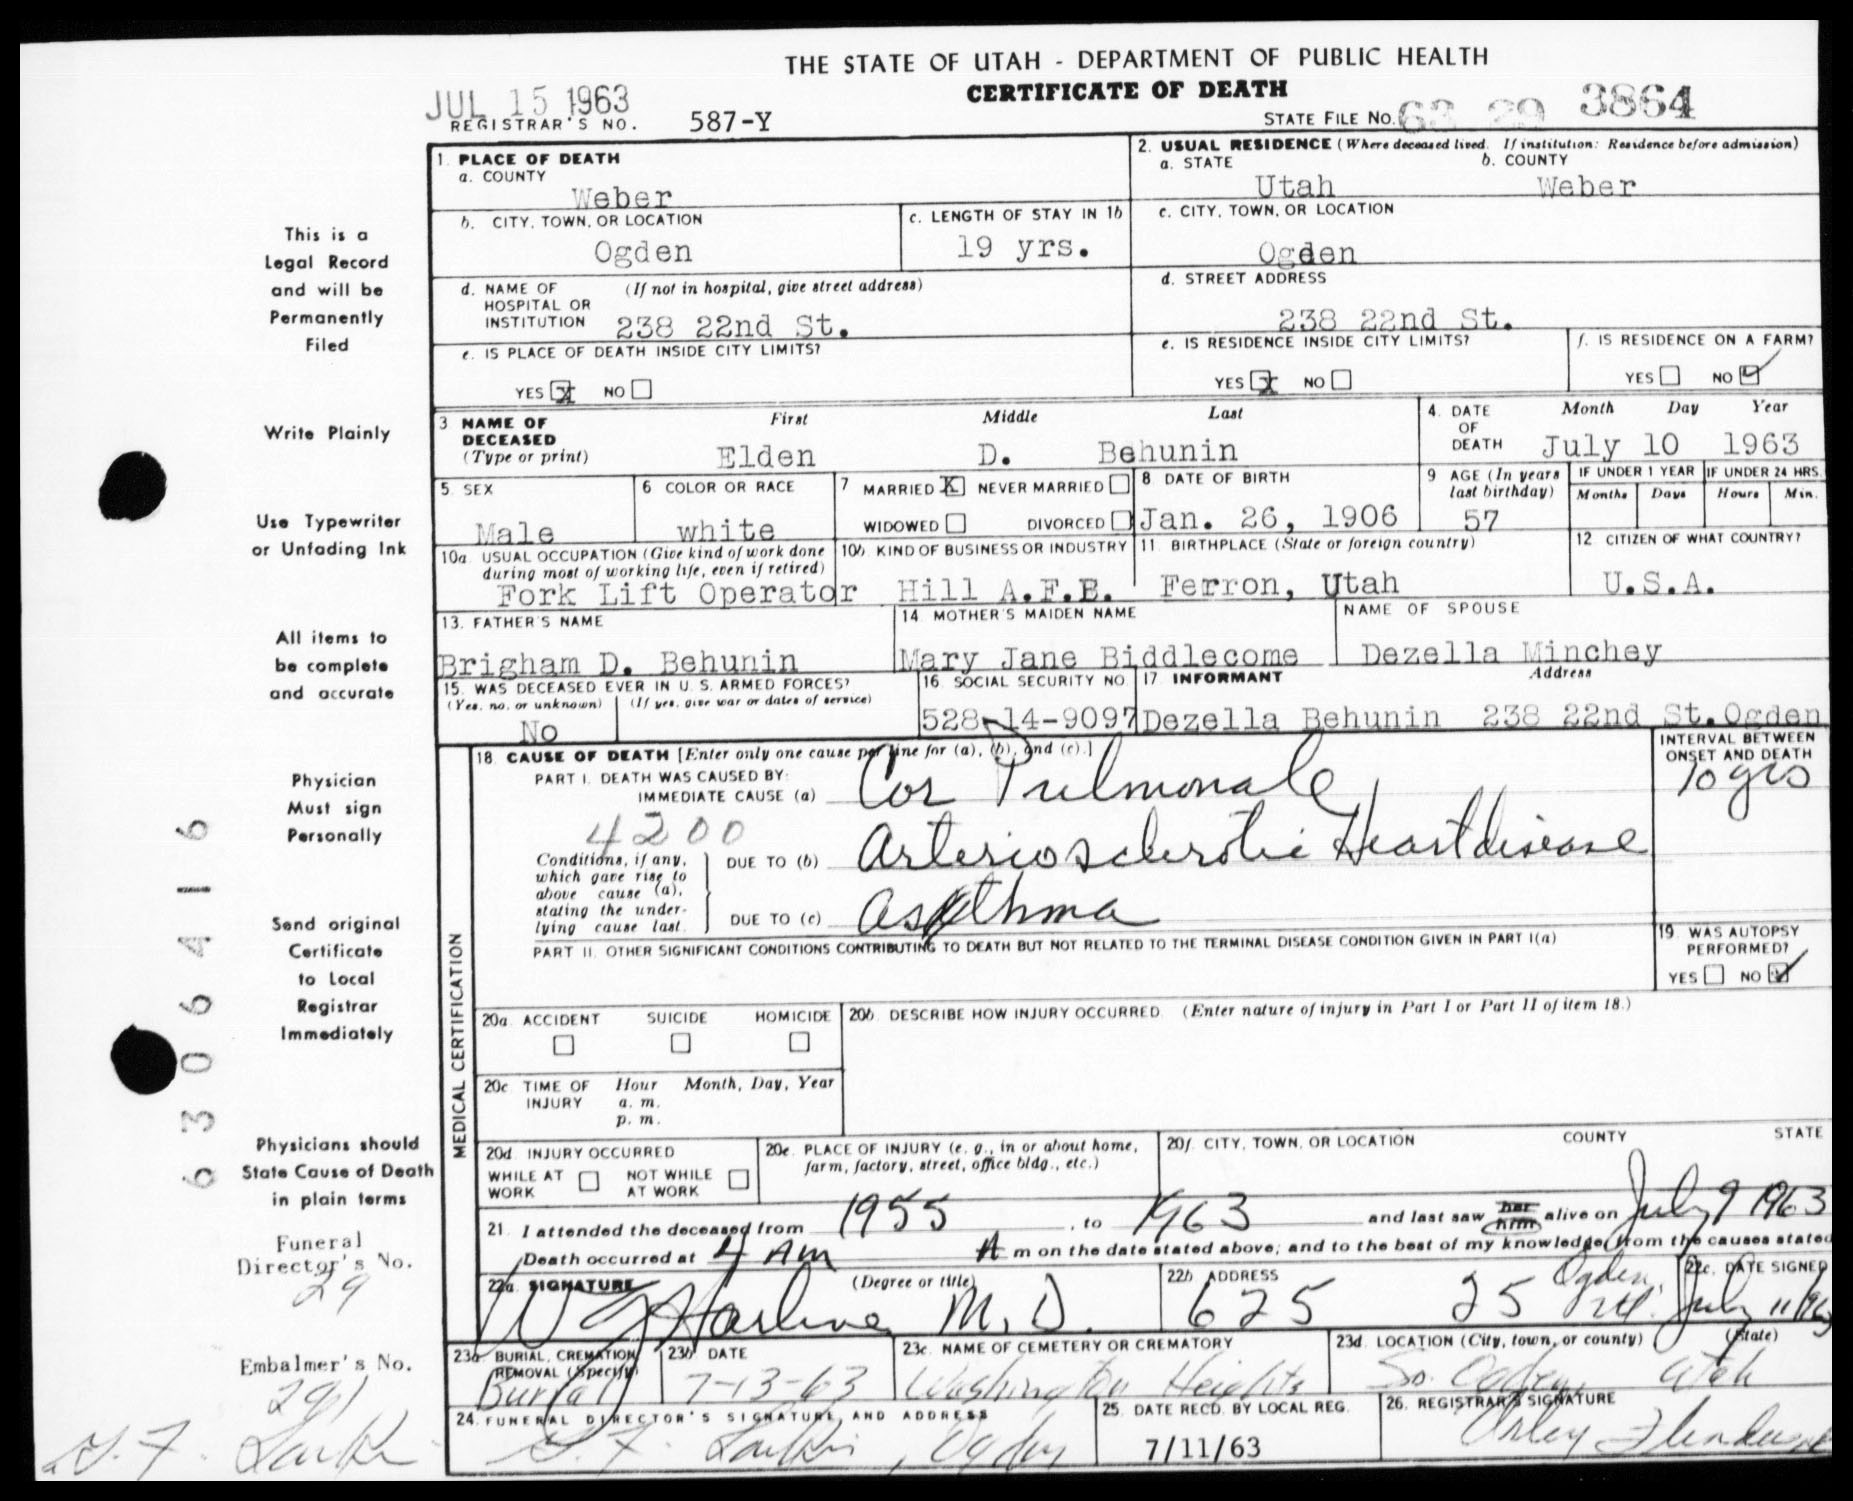 THE STATE OF UTAH - DEPARTMENT OF PUBLIC HEALTH
CERTIFICATE OF DEATH
JUL 15 1963
REGISTRAR'S NO. 587-Y
STATE FILE NO. 63 29 3864
1. PLACE OF DEATH
a. COUNTY
Weber
2. USUAL RESIDENCE (Where deceased lived. If institution: Residence before admission)
a. STATE b. COUNTY
Utah Weber
b. CITY, TOWN, OR LOCATION
Ogden
c. LENGTH OF STAY IN 1b
19 yrs.
c. CITY, TOWN, OR LOCATION
Ogden
d. NAME OF HOSPITAL OR INSTITUTION (If not in hospital, give street address)
238 22nd St.
d. STREET ADDRESS
238 22nd St.
e. IS PLACE OF DEATH INSIDE CITY LIMITS?
YES X NO
e. IS RESIDENCE INSIDE CITY LIMITS?
YES X NO
f. IS RESIDENCE ON A FARM?
YES NO
3 NAME OF DECEASED (Type or print)
First Middle Last
Elden D. Behunin
4. DATE OF DEATH
Month Day Year
July 10 1963
5. SEX
Male
6 COLOR OR RACE
white
7 MARRIED X NEVER MARRIED
WIDOWED DIVORCED
8 DATE OF BIRTH
Jan. 26, 1906
9 AGE (In years last birthday)
57
IF UNDER 1 YEAR
Months Days
IF UNDER 24 HRS.
Hours Min.
10a. USUAL OCCUPATION (Give kind of work done during most of working life, even if retired)
Fork Lift Operator
10b. KIND OF BUSINESS OR INDUSTRY
Hill A.F.B.
11. BIRTHPLACE (State or foreign country)
Ferron, Utah
12 CITIZEN OF WHAT COUNTRY?
U.S.A.
13. FATHER'S NAME
Brigham D. Behunin
14. MOTHER'S MAIDEN NAME
Mary Jane Biddlecome
NAME OF SPOUSE
Dezella Minchey
15. WAS DECEASED EVER IN U.S. ARMED FORCES?
(Yes, no, or unknown) (If yes, give war or dates of service)
No
16. SOCIAL SECURITY NO.
528-14-9097
17. INFORMANT Address
Dezella Behunin 238 22nd St. Ogden
18 CAUSE OF DEATH [Enter only one cause per line for (a), (b), and (c).]
INTERVAL BETWEEN ONSET AND DEATH
PART I. DEATH WAS CAUSED BY:
IMMEDIATE CAUSE (a) Cor Pulmonale
10 yrs
4200
Conditions, if any, which gave rise to above cause (a), stating the underlying cause last.
DUE TO (b) Arteriosclerotic Heart disease
DUE TO (c) Asthma
PART II. OTHER SIGNIFICANT CONDITIONS CONTRIBUTING TO DEATH BUT NOT RELATED TO THE TERMINAL DISEASE CONDITION GIVEN IN PART I(a)
19. WAS AUTOPSY PERFORMED?
YES NO
MEDICAL CERTIFICATION
20a. ACCIDENT SUICIDE HOMICIDE
20b. DESCRIBE HOW INJURY OCCURRED. (Enter nature of injury in Part I or Part II of item 18.)
20c. TIME OF INJURY
Hour Month, Day, Year
a. m.
p. m.
20d. INJURY OCCURRED
WHILE AT WORK NOT WHILE AT WORK
20e. PLACE OF INJURY (e. g., in or about home, farm, factory, street, office bldg., etc.)
20f. CITY, TOWN, OR LOCATION COUNTY STATE
21. I attended the deceased from 1955, to 1963 and last saw her him alive on July 9 1963
Death occurred at 4 AM A m on the date stated above; and to the best of my knowledge, from the causes stated
22a. SIGNATURE (Degree or title)
M.D.
22b. ADDRESS
625 25 Ogden
22c. DATE SIGNED
July 11/963
23a. BURIAL, CREMATION, REMOVAL (Specify)
Burial
23b. DATE
7-13-63
23c. NAME OF CEMETERY OR CREMATORY
Washington Heights
23d. LOCATION (City, town, or county) (State)
So. Ogden, Utah
24. FUNERAL DIRECTOR'S SIGNATURE, AND ADDRESS
Larkin, Ogden
25. DATE RECD. BY LOCAL REG.
7/11/63
26. REGISTRAR'S SIGNATURE
This is a
Legal Record
and will be
Permanently
Filed
Write Plainly
Use Typewriter
or Unfading Ink
All items to
be complete
and accurate
Physician
Must sign
Personally
Send original
Certificate
to Local
Registrar
Immediately
Physicians should
State Cause of Death
in plain terms
Funeral
Director's No.
29
Embalmer's No.
291
6306416